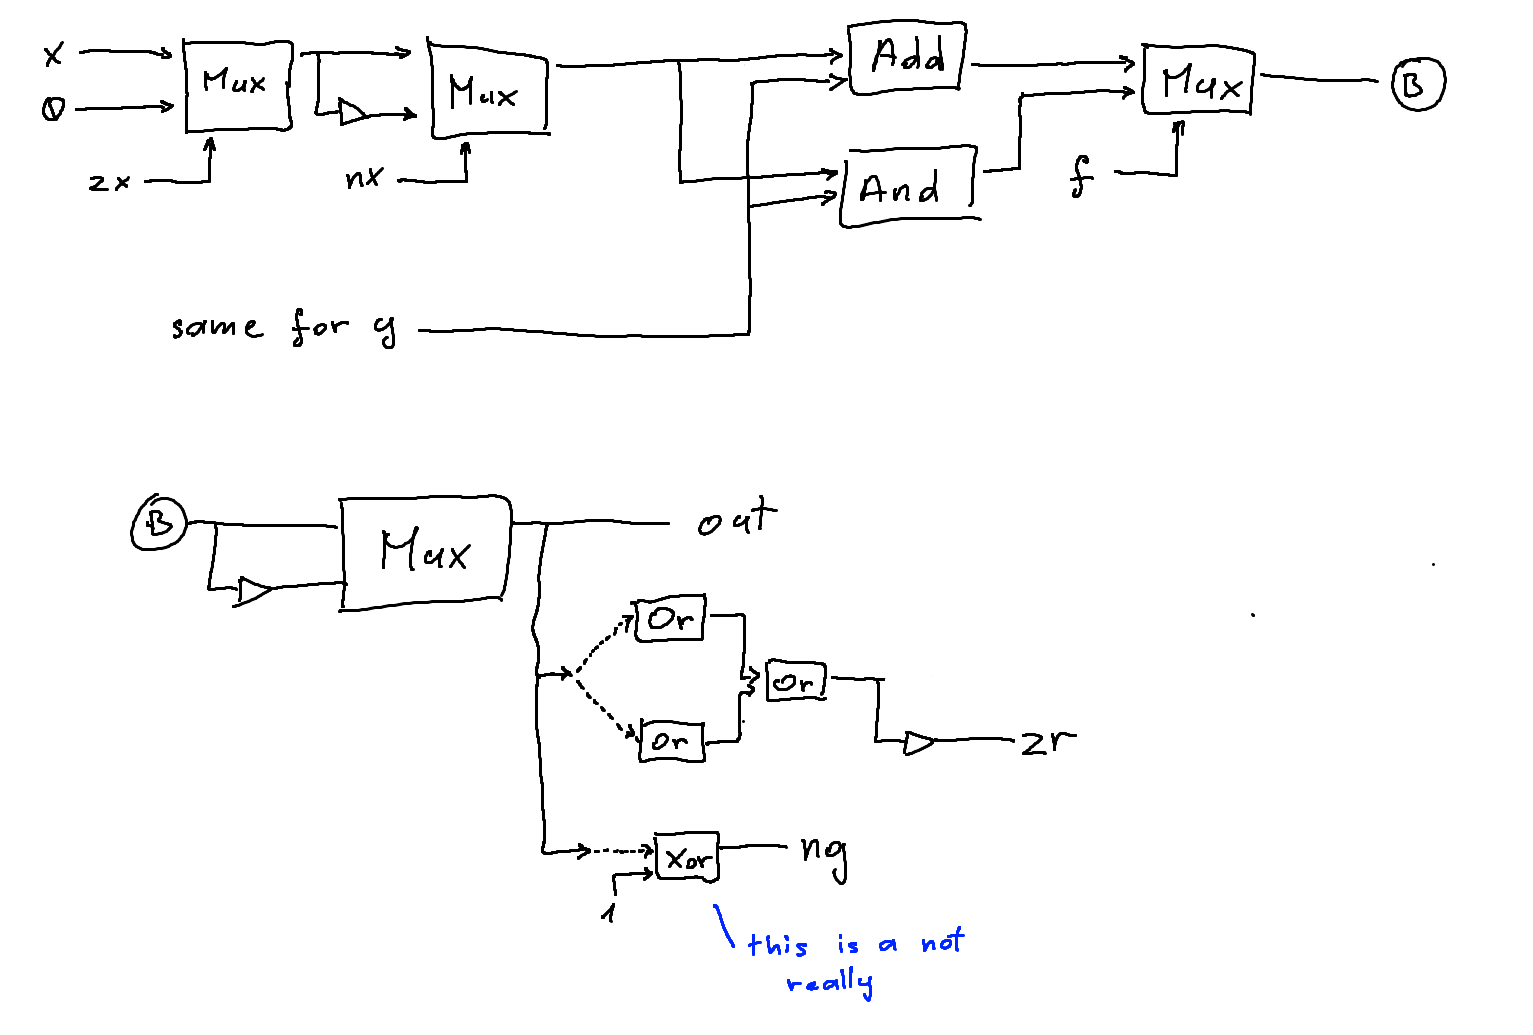 x
0
Mux
zx
Mux
nx
Add
And
Mux
f
B
same for y
B
Mux
out
Or
Or
Or
zr
Xor
ng
1
this is a not
really